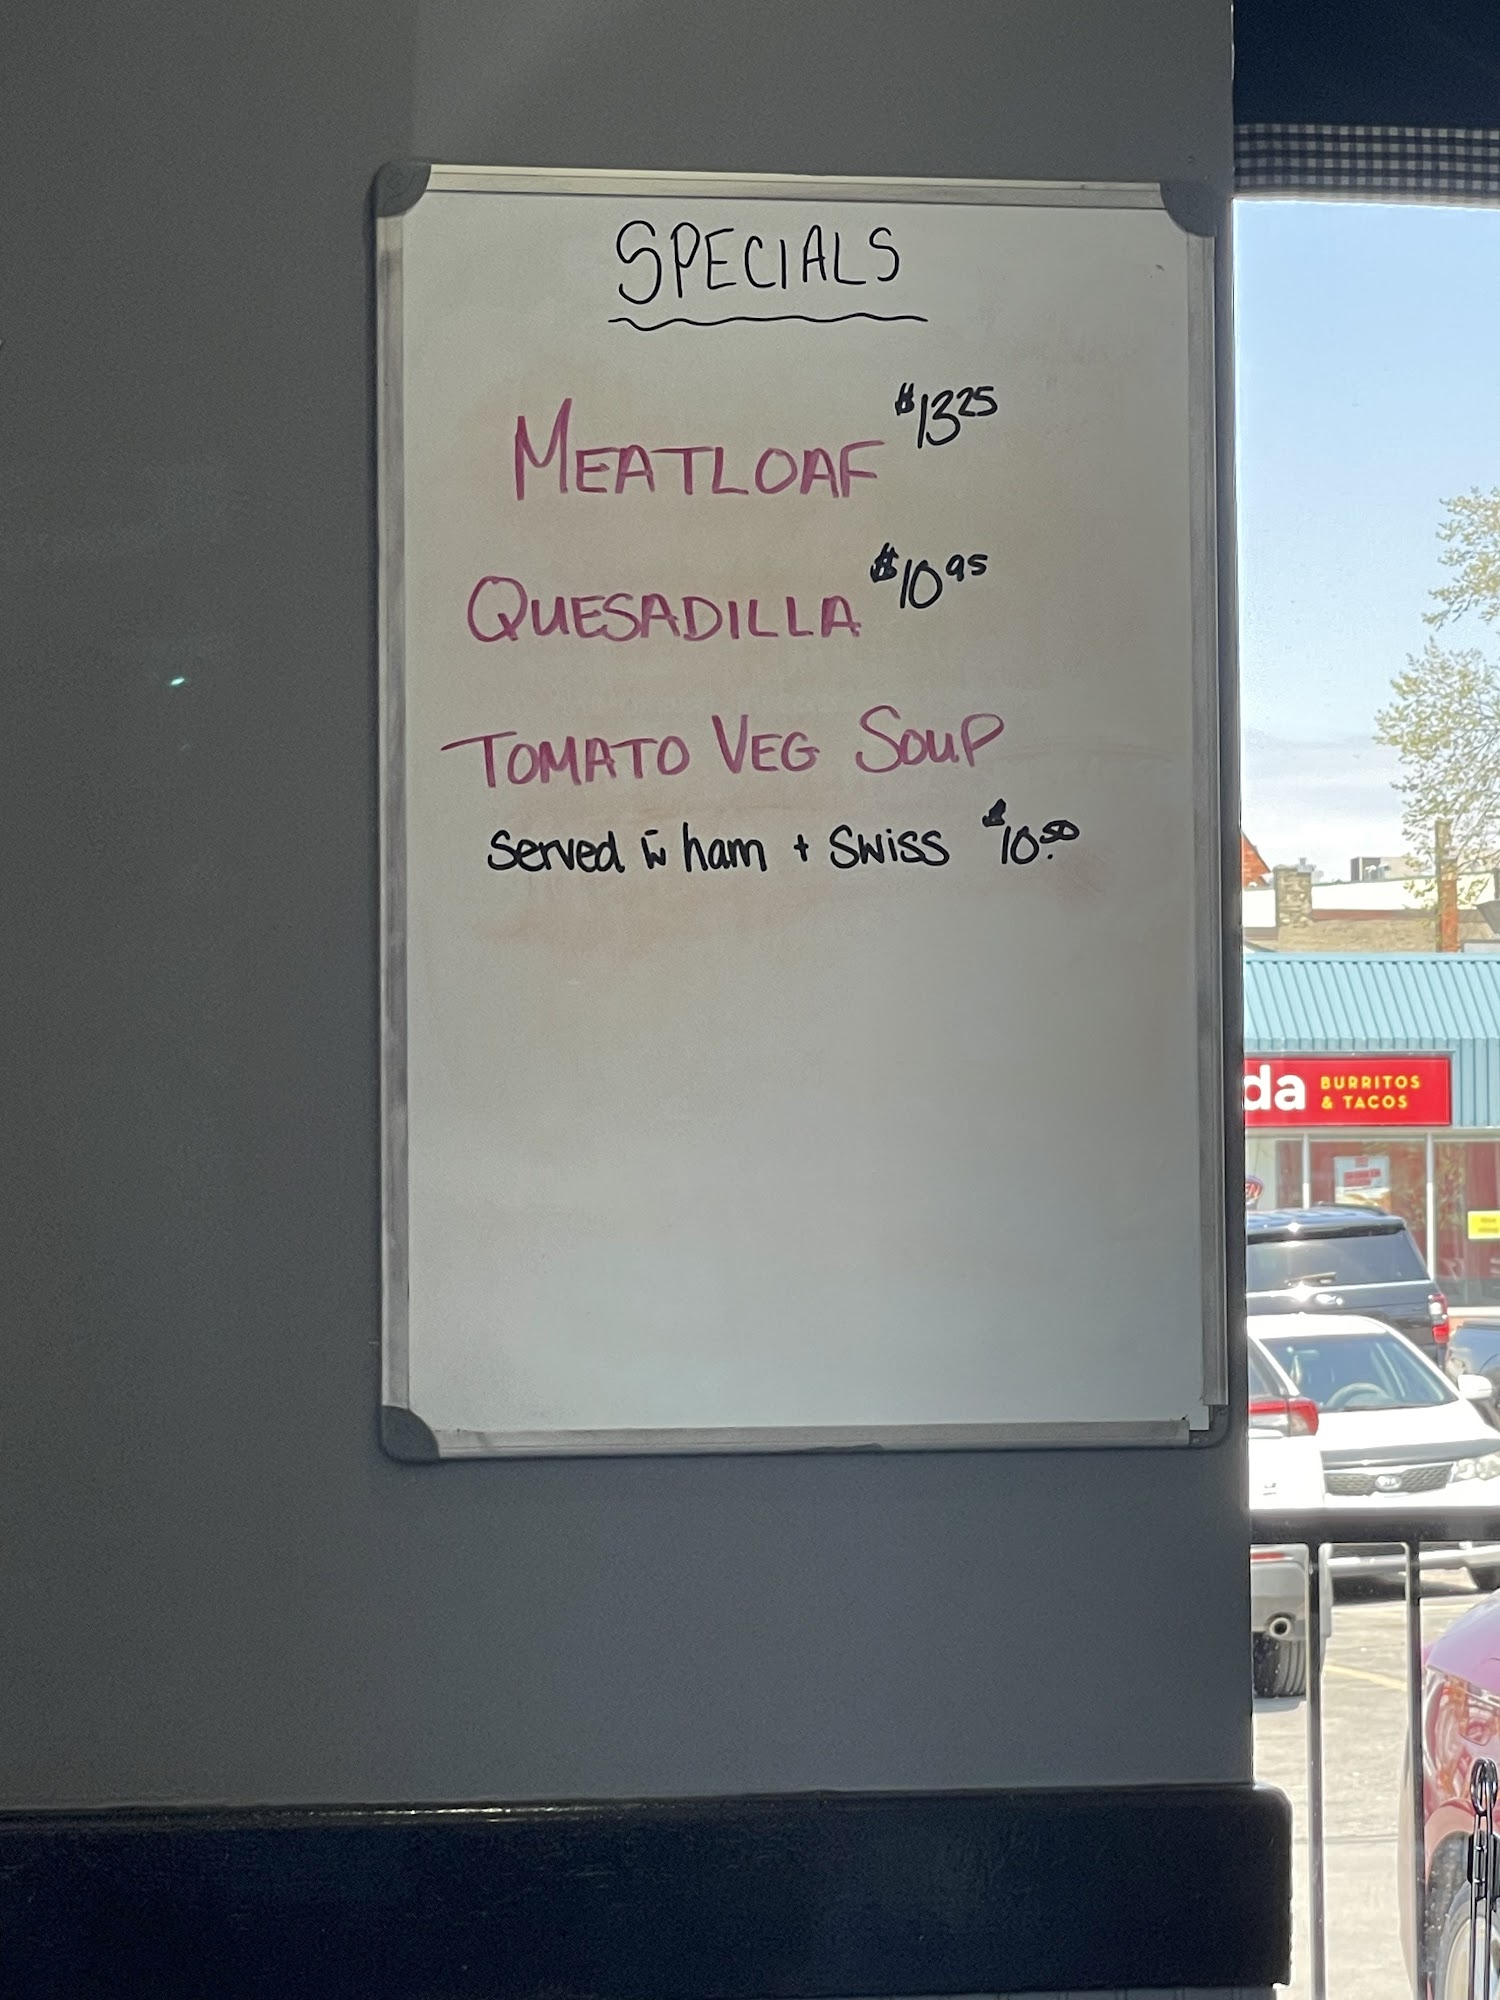 SPECIALS
MEATLOAF $13.25
QUESADILLA $10.95
TOMATO VEG SOUP
Served w ham + Swiss $10.50
da BURRITOS
& TACOS
KIA